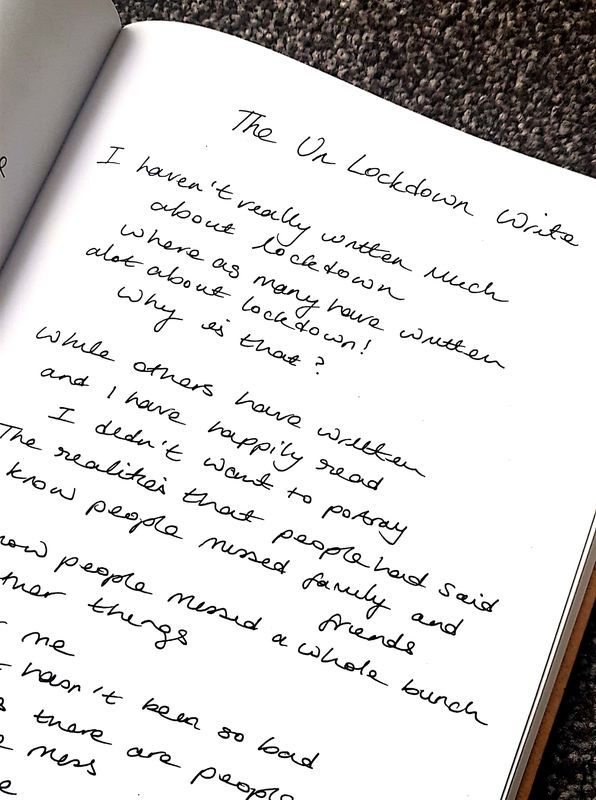 The Un Lockdown Write
I haven't really written much
about lockdown
where as many have written
alot about lockdown!
why is that?
While others have written
and I have happily read
I didn't want to potray
The realities that people had said
know people missed family and
friends
now people missed a whole bunch
ther things
me
hasn't been so bad
there are people
mess